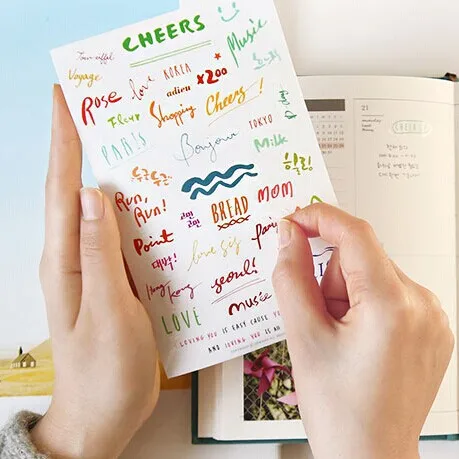 CHEERS
Tour eiffel
Voyage
Music
Rose
love
KOREA
adieu
x200
Fleur
Shopping
Cheers!
PARIS
Bonjour
TOKYO
Milk
두근두근
힐링
Run,
Run!
BREAD
MOM
Point
대박!
love sis
paris
Hong Kong
seoul!
LOVE
musée
LOVING YOU IS EASY CAUSE YO
AND LOVING YOU IS
21
CHEERS